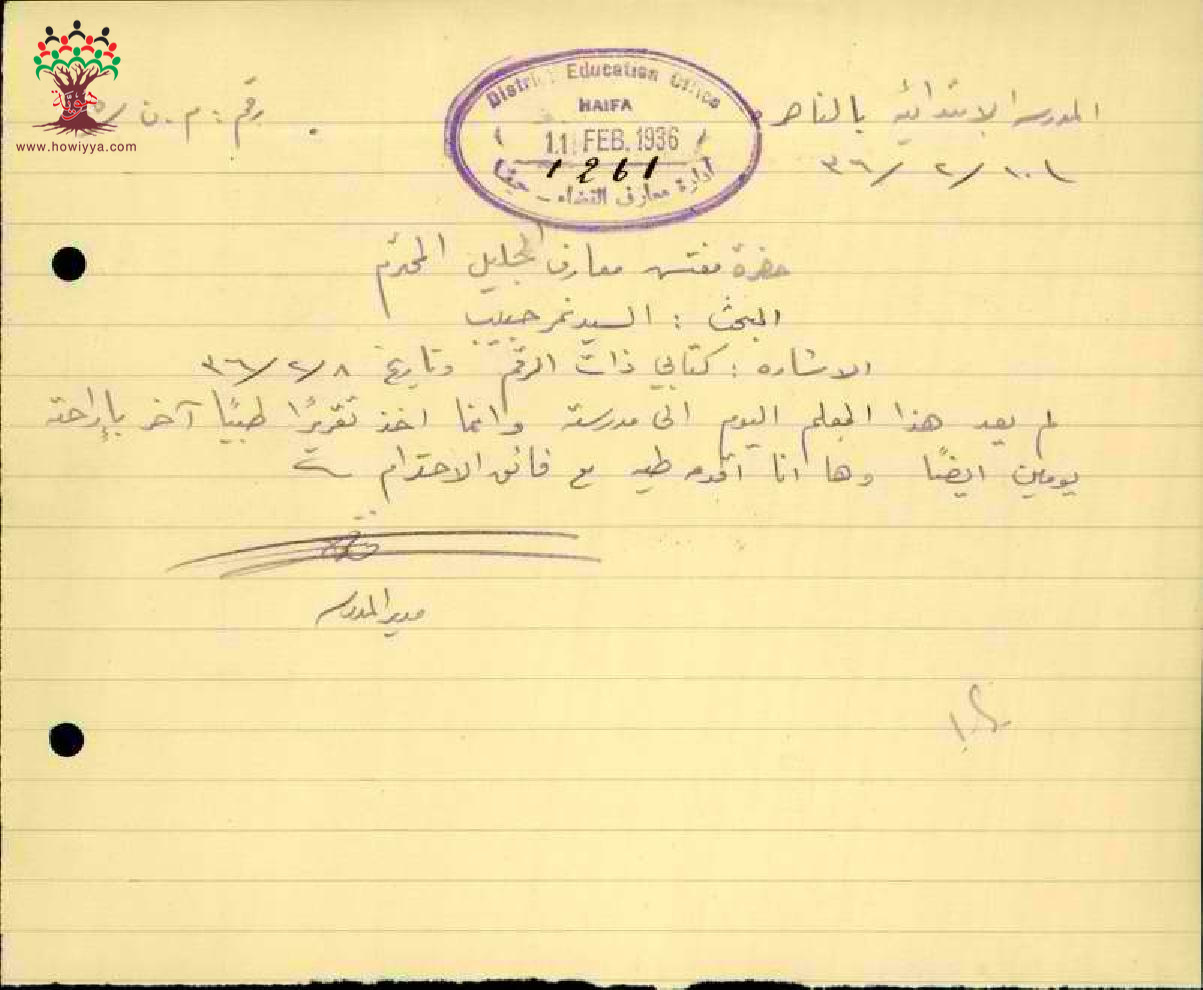 المدرسة الابتدائية بالناصرة
١٠/٢/٣٦
رقم: م.ن/٥
District Education Office
HAIFA
11 FEB. 1936
1261
ادارة معارف القضاء - حيفا
هوية
www.howiyya.com
حضرة مفتش معارف الجليل المحترم
البحث: السيد نمر حبيب
الاشارة: كتابي ذات الرقم وتاريخ ٨/٢/٣٦
لم يعد هذا المعلم اليوم الى مدرسته وانما اخذ تقريرًا طبيًا آخر بإراحته
يومين ايضًا وها انا اقدمه طيه مع فائق الاحترام
مدير المدرسة